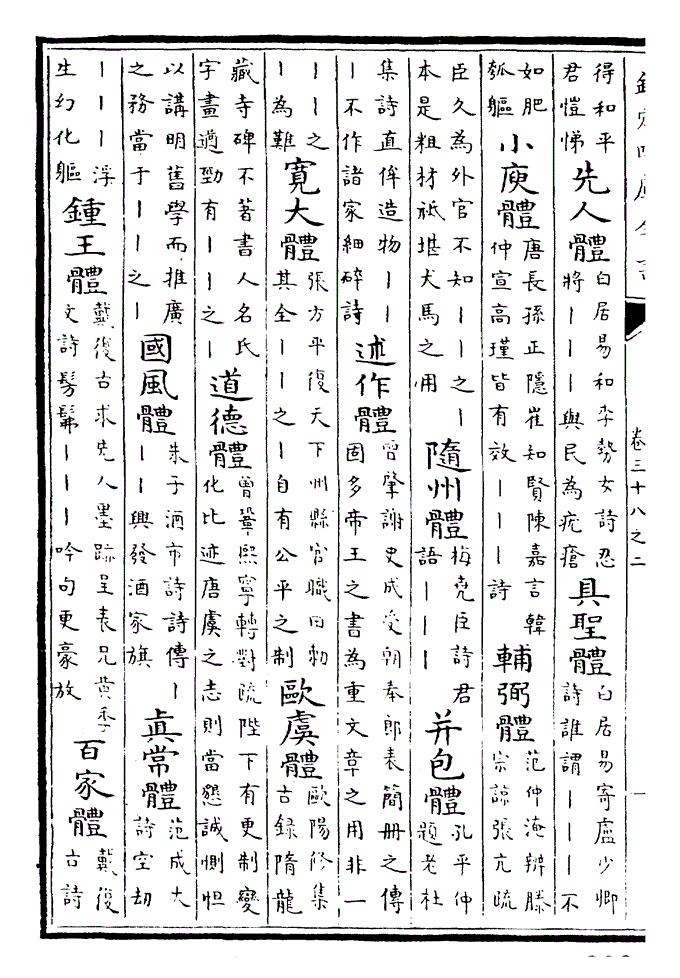 欽定四庫全書
卷三十八之二
一
得和平
君愷悌
先人體
白居易和李勢女詩忍
將｜｜｜與民為疣瘡
具聖體
白居易寄盧少卿
詩誰謂｜｜｜不
如肥
瓠軀
小庾體
唐長孫正隱崔知賢陳嘉言韓
仲宣高瑾皆有效｜｜｜詩
輔弼體
范仲淹辨滕
宗諒張亢疏
臣久為外官不知｜｜之｜
本是粗材祇堪犬馬之用
隨州體
梅堯臣詩君
語｜｜｜
并包體
孔平仲
題老杜
集詩直侔造物｜｜
｜不作諸家細碎詩
述作體
曾肇謝史成受朝奉郎表簡冊之傳
固多帝王之書為重文章之用非一
｜｜之
｜為難
寬大體
張方平復天下州縣官職田勅
其全｜｜之｜自有公平之制
歐虞體
歐陽修集
古錄隋龍
藏寺碑不著書人名氏
字畫遒勁有｜｜之｜
道德體
曾鞏熙寧轉對疏陛下有更制變
化比迹唐虞之志則當懇誠惻怛
以講明舊學而推廣
之務當于｜｜之｜
國風體
朱子酒市詩詩傳｜
｜｜興發酒家旗
眞常體
范成大
詩空劫
｜｜｜浮
生幻化軀
鍾王體
戴復古求先人墨跡呈表兄黃季
文詩髣髴｜｜｜吟句更豪放
百家體
戴復
古詩